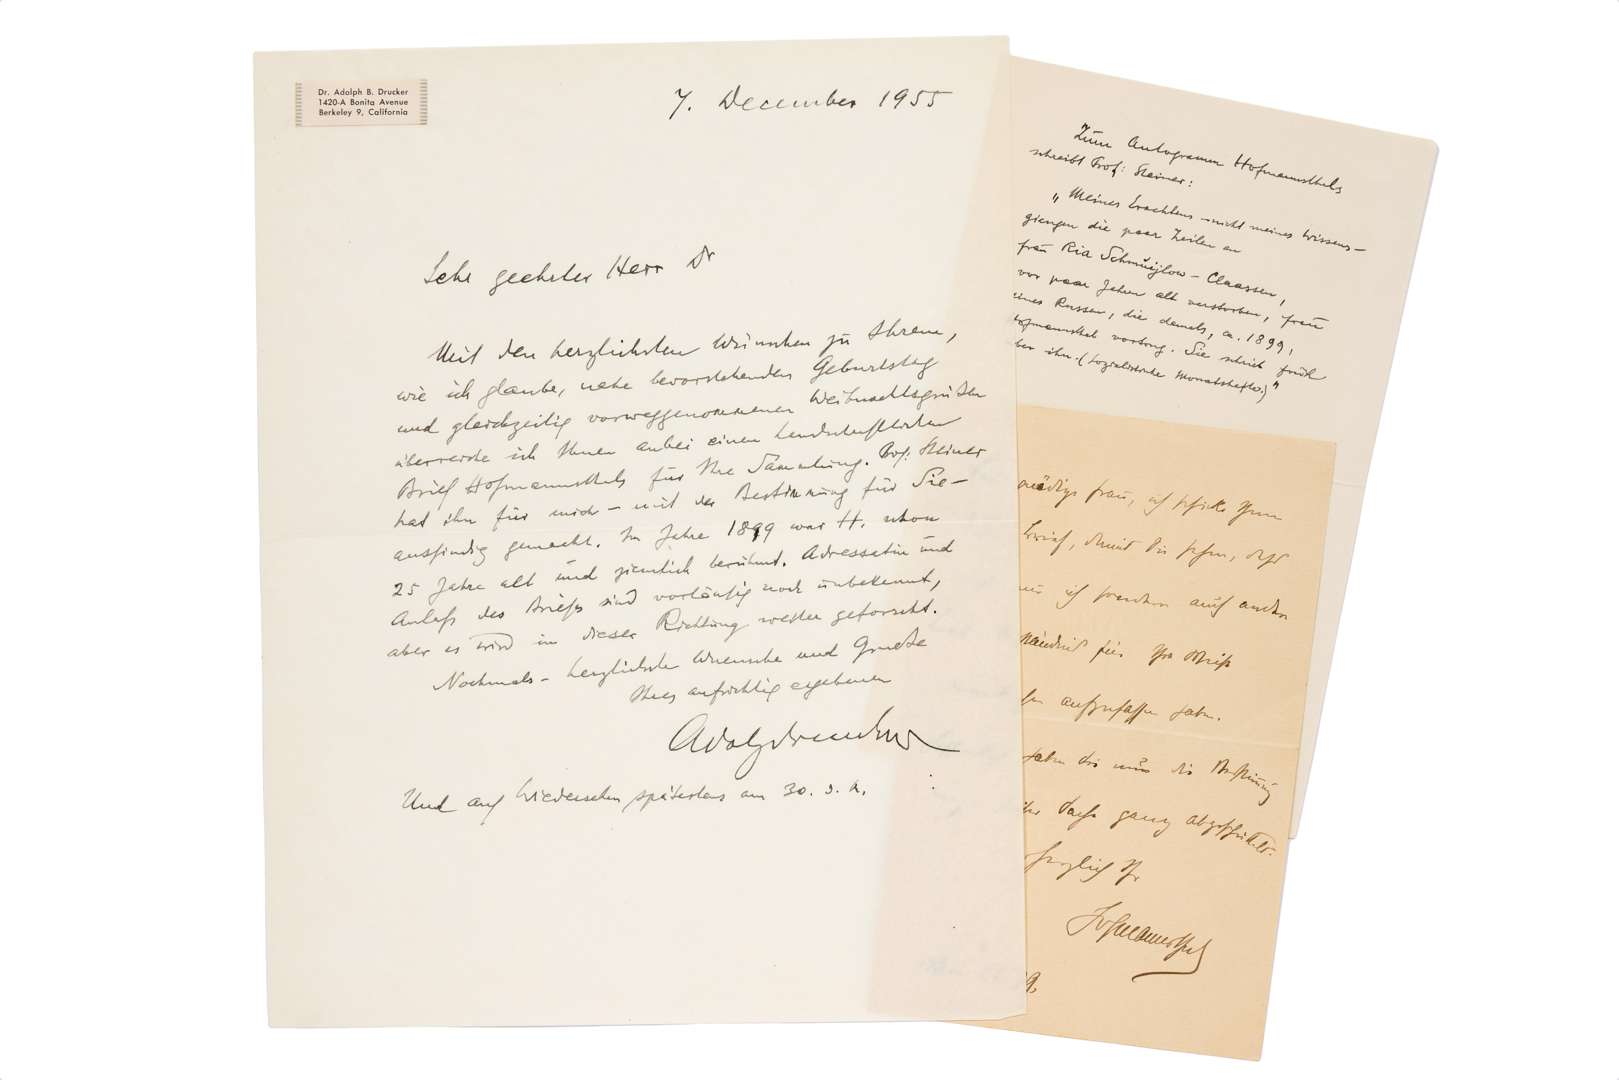 Dr. Adolph B. Drucker
1420-A Bonita Avenue
Berkeley 9, California
7. December 1955
Sehr geehrter Herr Dr
Mit den herzlichsten Wünschen zu Ihrem,
wie ich glaube, nahe bevorstehenden Geburtstag
und gleichzeitig vorweggenommenen Weihnachtsgrüßen
überreiche ich Ihnen anbei einen
Brief Hofmannsthals für Ihre Sammlung. Prof. Steiner
hat ihn für mich – mit der Bestimmung für Sie –
ausfindig gemacht. Im Jahre 1899 war H. schon
25 Jahre alt und ziemlich berühmt. Adressatin und
Anlaß des Briefes sind vorläufig noch unbekannt,
aber es wird in dieser Richtung weiter geforscht.
Nochmals – herzlichste Wuensche und Gruesse
Ihres aufrichtig ergebenen
Adolph Drucker
Und auf Wiedersehen spätestens am 30. d. M.
Zum Autogramm Hofmannsthals
schreibt Prof. Steiner:
„Meines Erachtens – nicht meines Wissens –
giengen die paar Zeilen an
Frau Ria Schmujlow-Claassen,
vor paar Jahren alt verstorben, Frau
eines Russen, die damals, ca. 1899,
Hofmannsthal vortrug. Sie schrieb früh
über ihn. (Sozialistische Monatshefte)"
gnädige Frau, ich schicke Ihnen
Brief, damit Sie sehen, dass
ich sondern auch andere
für Ihr
aufzufassen
die nun die
Sache ganz
herzlich Ihr
Hofmannsthal
9.